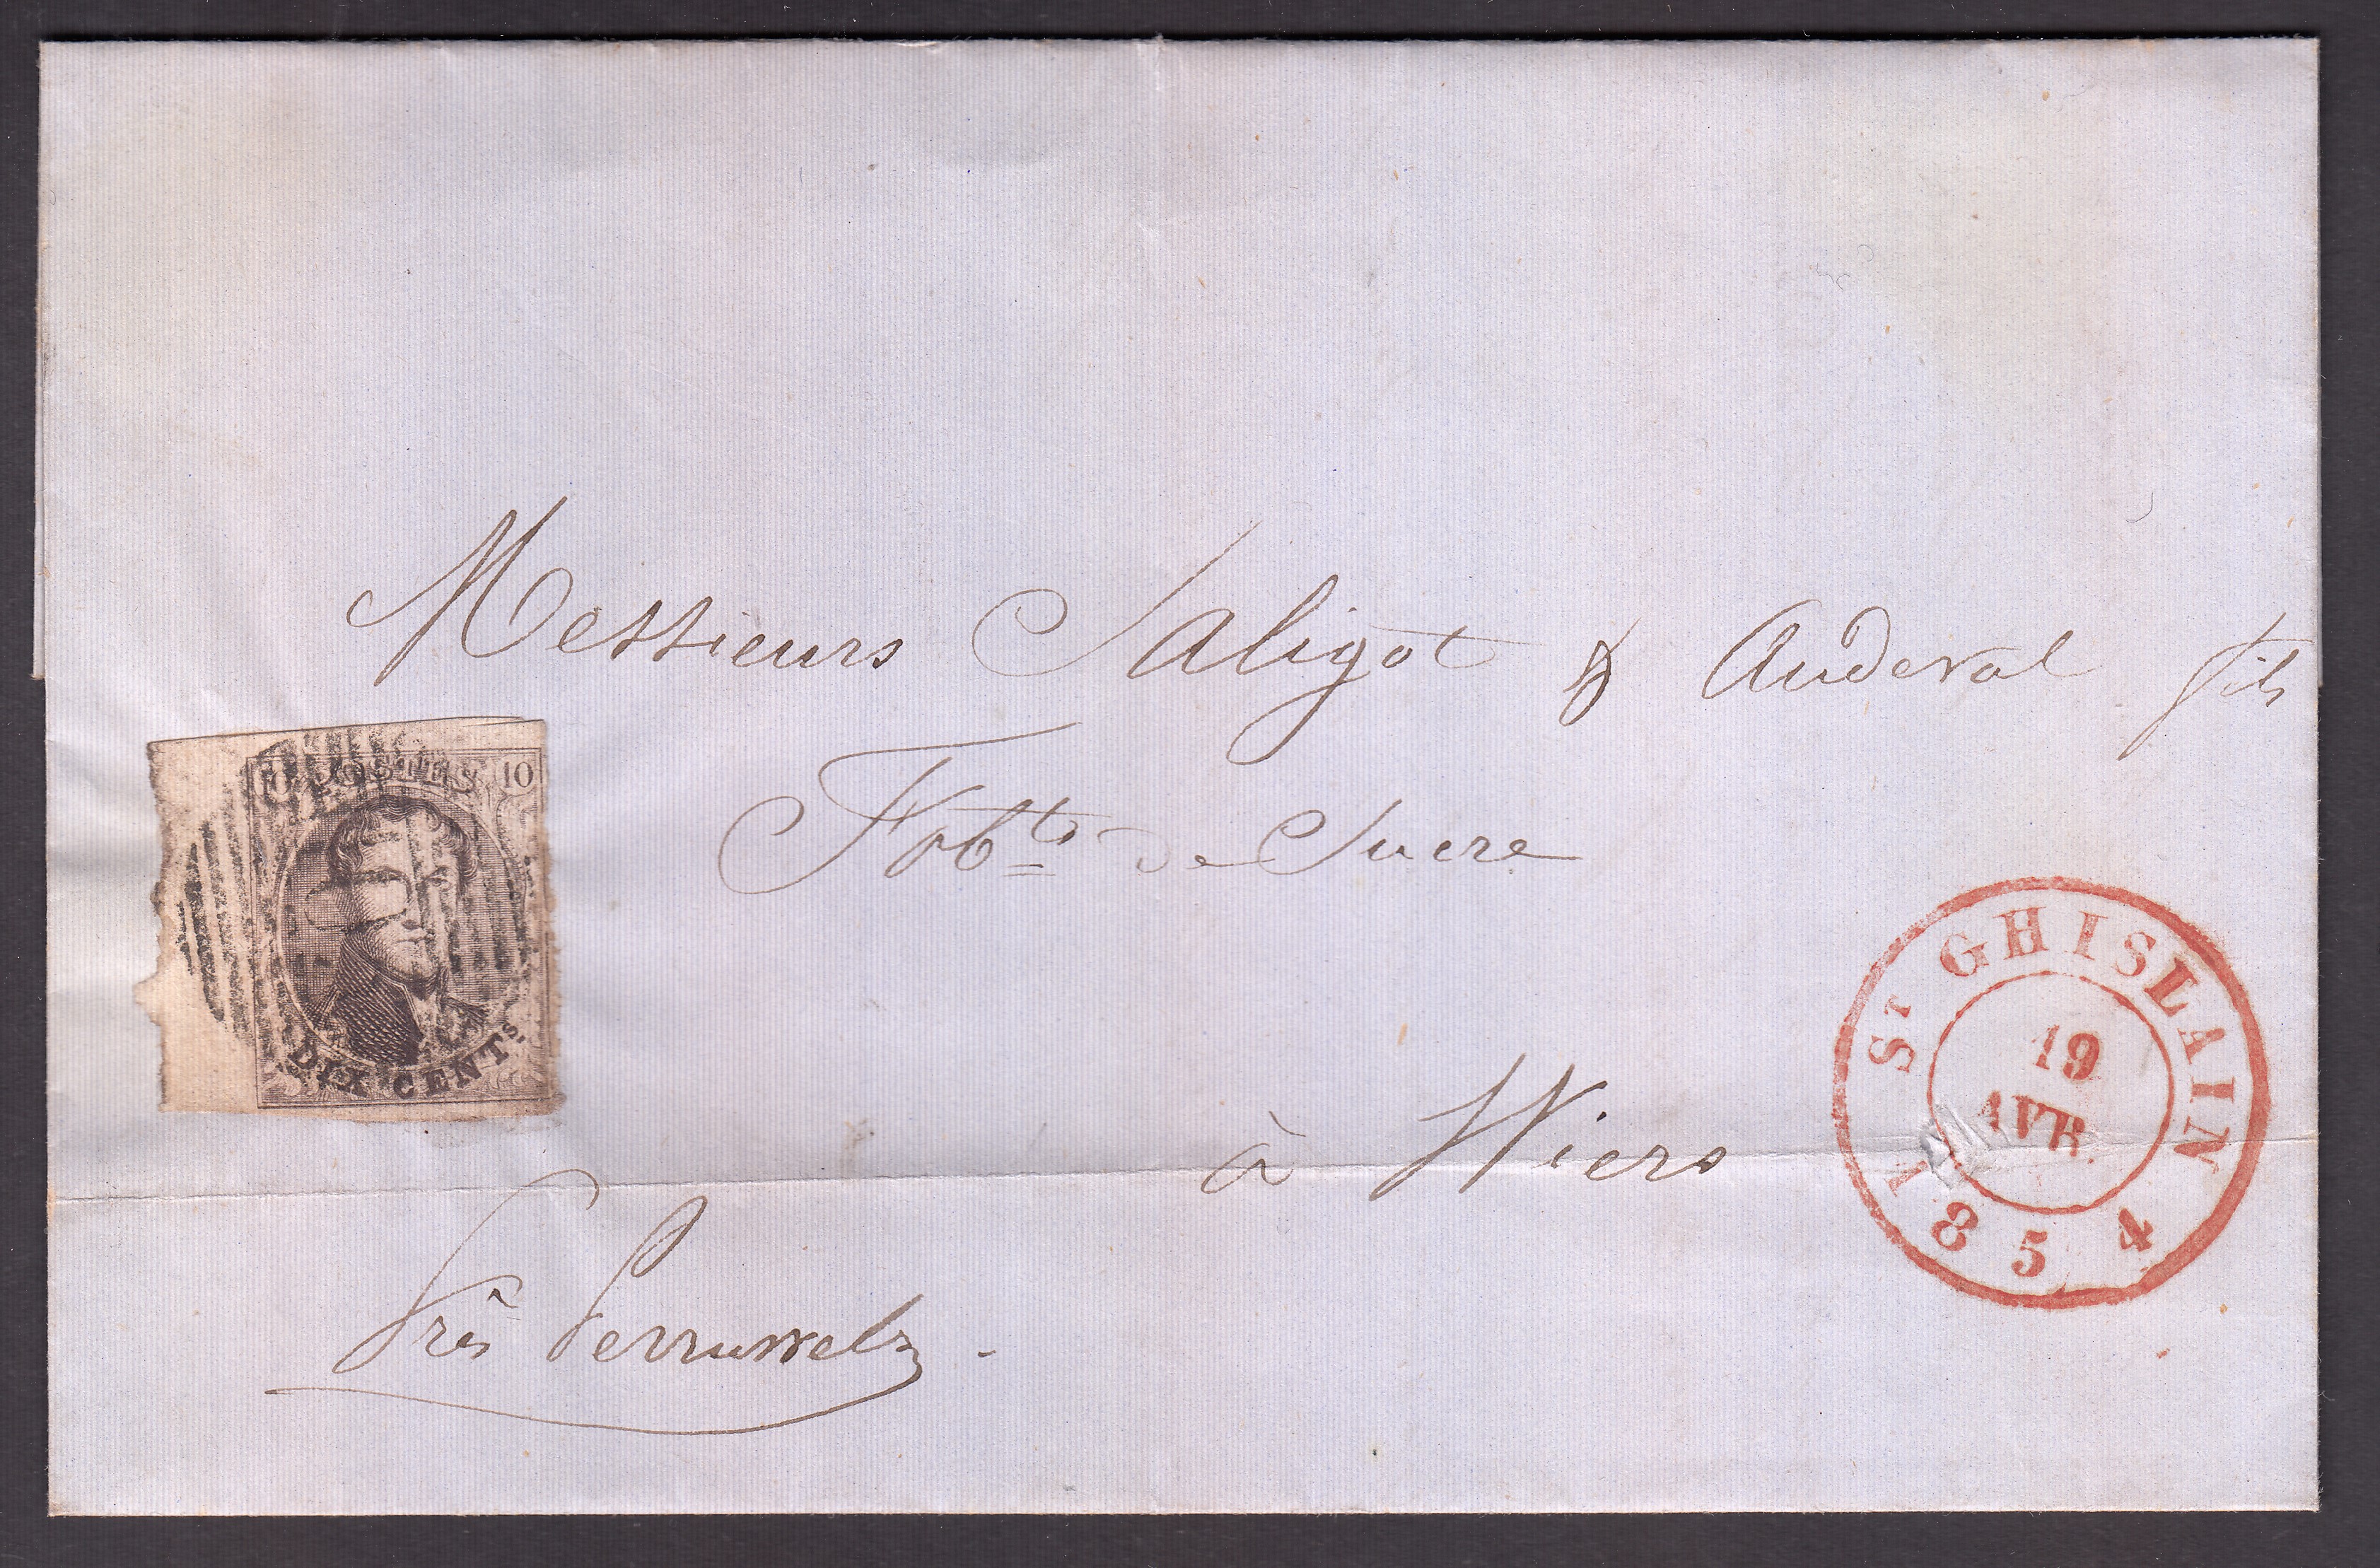 Messieurs Saligot & Audeval fils
Fabts de Sucre
à Wiers
Près Perruwelz
POSTES 10
DIX CENTS
ST GHISLAIN
19
AVR.
1854